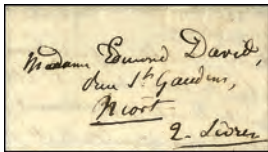 Madame Edmond David,
rue St Gaudens,
Niort
2. Sèvres